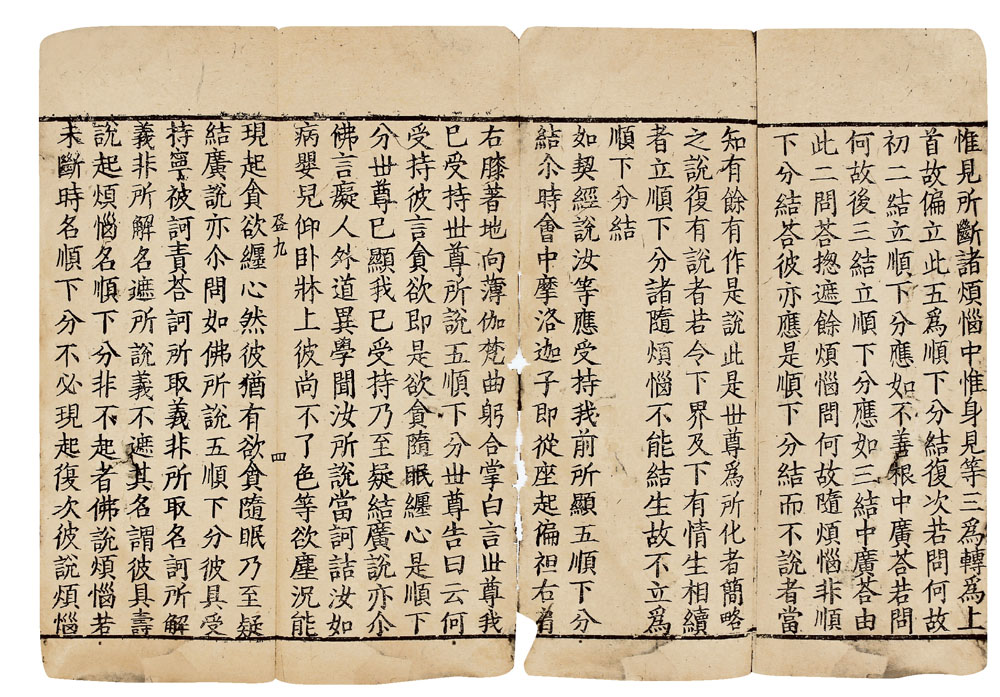 惟見所斷諸煩惱中惟身見等三爲轉爲上
首故偏立此五爲順下分結復次若問何故
初二結立順下分應如不善根中廣荅若問
何故後三結立順下分應如三結中廣荅由
此二問荅揔遮餘煩惱問何故隨煩惱非順
下分結荅彼亦應是順下分結而不說者當
知有餘有作是說此是丗尊爲所化者簡略
之說復有說者若令下界及下有情生相續
者立順下分諸隨煩惱不能結生故不立爲
順下分結
如契經說汝等應受持我前所顯五順下分
結尒時會中摩洛迦子即從座起偏袒右肩
右膝著地向薄伽梵曲躬合掌白言丗尊我
已受持丗尊所說五順下分丗尊告曰云何
受持彼言貪欲即是欲貪隨眠纏心是順下
分丗尊已顯我已受持乃至疑結廣說亦尒
佛言癡人外道異學聞汝所說當訶詰汝如
病嬰兒仰卧牀上彼尚不了色等欲塵況能
盈九 四
現起貪欲纏心然彼猶有欲貪隨眠乃至疑
結廣說亦尒問如佛所說五順下分彼具受
持寧彼訶責荅訶所取義非所取名訶所解
義非所解名遮所說義不遮其名謂彼具壽
說起煩惱名順下分非不起者佛說煩惱若
未斷時名順下分不必現起復次彼說煩惱